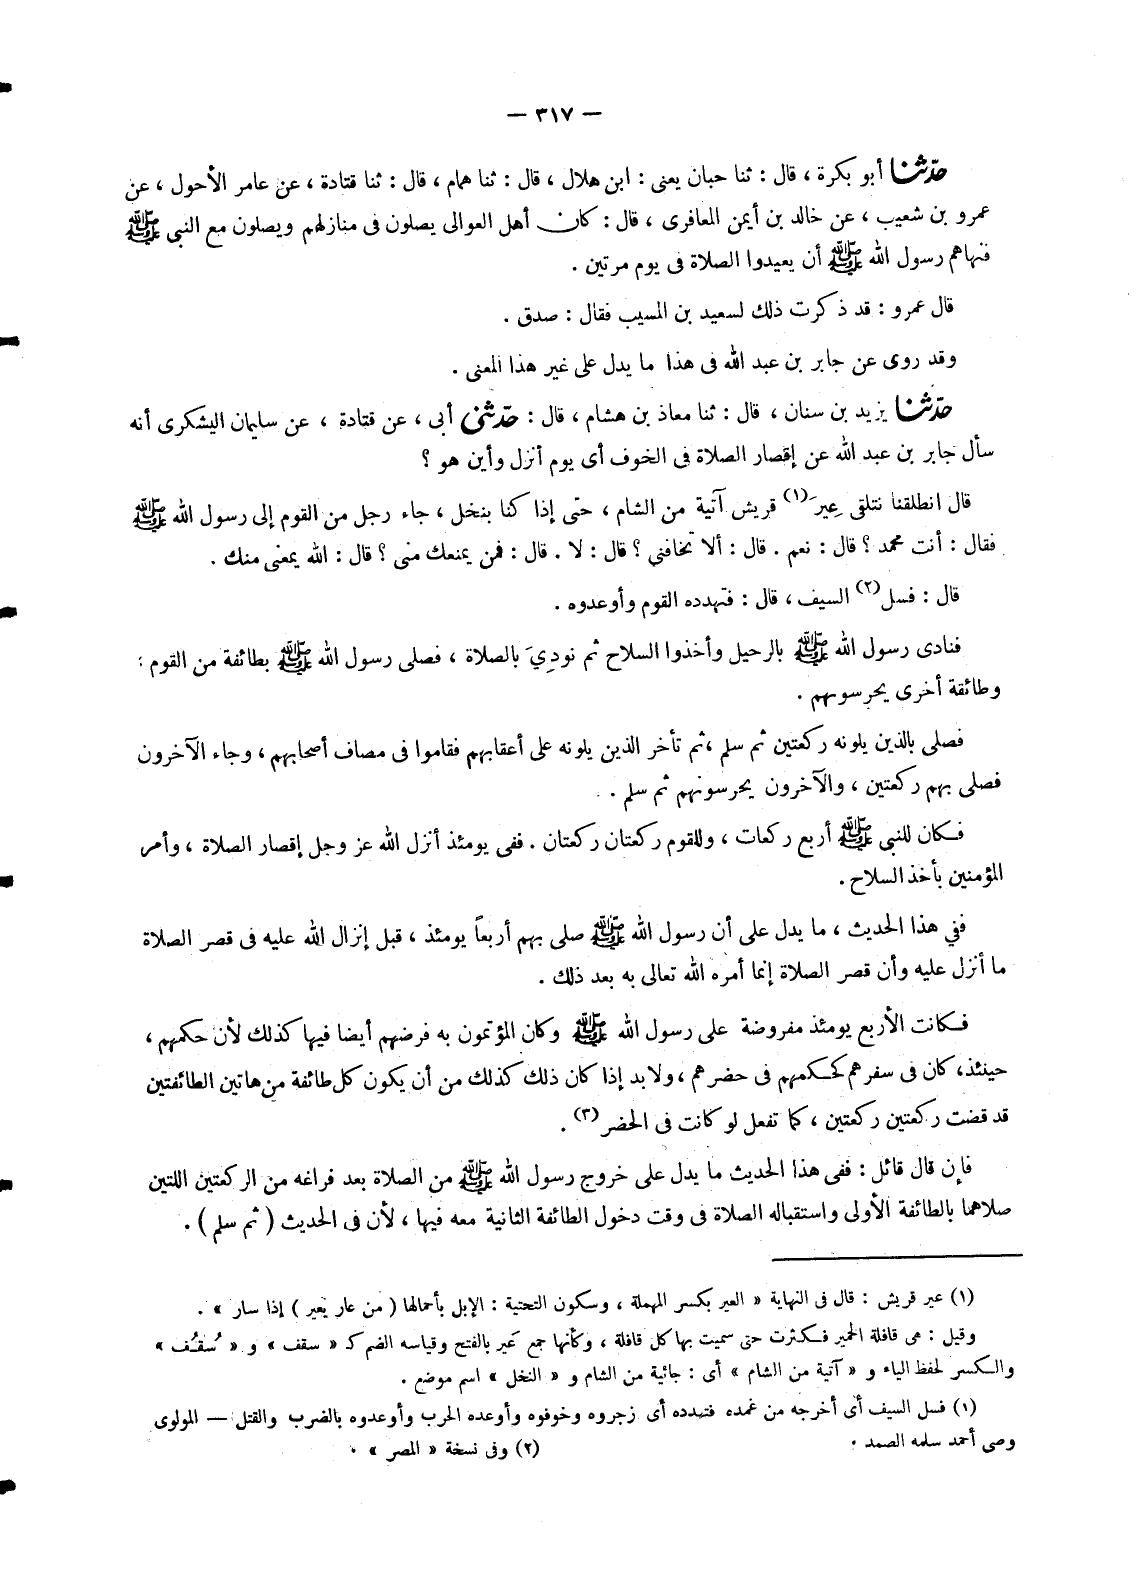 — ٣١٧ —
حدّثنا أبو بكرة ، قال : ثنا حبان يعنى : ابن هلال ، قال : ثنا همام ، قال : ثنا قتادة ، عن عامر الأحول ، عن
عمرو بن شعيب ، عن خالد بن أيمن المعافرى ، قال : كان أهل العوالى يصلون فى منازلهم ويصلون مع النبى ﷺ
فنهاهم رسول الله ﷺ أن يعيدوا الصلاة فى يوم مرتين .
قال عمرو : قد ذكرت ذلك لسعيد بن المسيب فقال : صدق .
وقد روى عن جابر بن عبد الله فى هذا ما يدل على غير هذا المعنى .
حدّثنا يزيد بن سنان ، قال : ثنا معاذ بن هشام ، قال : حدّثنى أبى ، عن قتادة ، عن سليمان اليشكرى أنه
سأل جابر بن عبد الله عن إقصار الصلاة فى الخوف أى يوم أنزل وأين هو ؟
قال انطلقنا نتلقى عِيرَ(١) قريش آتية من الشام ، حتى إذا كنا بنخل ، جاء رجل من القوم إلى رسول الله ﷺ
فقال : أنت محمد ؟ قال : نعم . قال : ألا تخافنى ؟ قال : لا . قال : فمن يمنعك منى ؟ قال : الله يمعنى منك .
قال : فسل(٢) السيف ، قال : فتهدده القوم وأوعدوه .
فنادى رسول الله ﷺ بالرحيل وأخذوا السلاح ثم نودِيَ بالصلاة ، فصلى رسول الله ﷺ بطائفة من القوم :
وطائفة أخرى يحرسونهم .
فصلى بالذين يلونه ركعتين ثم سلم ،ثم تأخر الذين يلونه على أعقابهم فقاموا فى مصاف أصحابهم ، وجاء الآخرون
فصلى بهم ركعتين ، والآخرون يحرسونهم ثم سلم .
فكان للنبى ﷺ أربع ركعات ، وللقوم ركعتان ركعتان . ففى يومئذ أنزل الله عز وجل إقصار الصلاة ، وأمر
المؤمنين بأخذ السلاح .
ففي هذا الحديث ، ما يدل على أن رسول الله ﷺ صلى بهم أربعاً يومئذ ، قبل إنزال الله عليه فى قصر الصلاة
ما أنزل عليه وأن قصر الصلاة إنما أمره الله تعالى به بعد ذلك .
فكانت الأربع يومئذ مفروضة على رسول الله ﷺ وكان المؤتمون به فرضهم أيضا فيها كذلك لأن حكمهم ،
حينئذ، كان فى سفرهم كحكمهم فى حضرهم ، ولابد إذا كان ذلك كذلك من أن يكون كل طائفة من هاتين الطائفتين
قد قضت ركعتين ركعتين ، كما تفعل لو كانت فى الحضر(٣) .
فإن قال قائل : ففى هذا الحديث ما يدل على خروج رسول الله ﷺ من الصلاة بعد فراغه من الركعتين اللتين
صلاهما بالطائفة الأولى واستقباله الصلاة فى وقت دخول الطائفة الثانية معه فيها ، لأن فى الحديث ( ثم سلم ) .
(١) عير قريش : قال فى النهاية « العير بكسر المهملة ، وسكون التحتية : الإبل بأحمالها ( من عار يعير ) إذا سار » .
وقيل : هى قافلة الحمير فكثرت حتى سميت بها كل قافلة ، وكأنها جمع عَير بالفتح وقياسه الضم كـ « سقف » و « سُقُف »
والكسر لحفظ الياء و « آتية من الشام » أى : جائية من الشام و « النخل » اسم موضع .
(١) فسل السيف أى أخرجه من غمده فتهدده أى زجروه وخوفوه وأوعده الحرب وأوعدوه بالضرب والقتل — المولوى
وصى أحمد سلمه الصمد . (٢) وفى نسخة « المصر » .